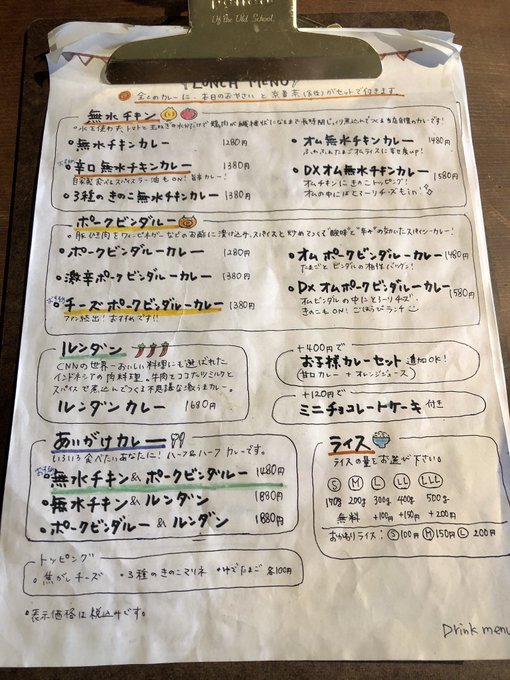 Up the Old School.
LUNCH MENU
全てのカレーに、本日のおやさいと
がセットで付きます
無水チキン
無水チキンカレー 1280円
辛口 無水チキンカレー 1380円
自家製 食べるスパイスラー油もON! 旨辛カレー!
3種のきのこ無水チキンカレー 1380円
オム無水チキンカレー 1480円
ふわふわたまごオムライスに
DXオム無水チキンカレー 1580円
オムチキンにきのこトッピング!
オムの中にはとろ〜りチーズもin!
ポークビンダルー
豚肉をワインビネガーなどのお酢に漬け込み、スパイスと炒めてつくる"酸味"と"辛み"の効いたスパイシーカレー!
ポークビンダルーカレー 1280円
激辛ポークビンダルーカレー 1380円
おすすめ チーズポークビンダルーカレー 1380円
ファン続出!おすすめです!!
オムポークビンダルーカレー 1480円
たまごとビンダルの相性バツグン!
DXオムポークビンダルーカレー 1580円
オムビンダルの中にとろ〜りチーズ
きのこもON! ごほうびランチ
ルンダン
CNNの世界一おいしい料理にも選ばれた
インドネシアの肉料理。牛肉とココナツミルクと
スパイスで煮込んでつくる不思議な激うまカレー。
ルンダンカレー 1680円
+400円で
お子様カレーセット 追加OK!
(甘口カレー + オレンジジュース)
+120円で
ミニチョコレートケーキ 付き
あいがけカレー
いろいろ食べたいあなたに! ハーフ&ハーフ カレーです。
おすすめ 無水チキン&ポークビンダルー 1480円
無水チキン&ルンダン 1880円
ポークビンダルー&ルンダン 1880円
ライス
ライスの量をお選び下さい。
S M L LL LLL
170g 200g 300g 400g 500g
無料 +100円 +150円 +200円
おかわりライス: S 100円 M 150円 L 200円
トッピング
焦がしチーズ ・3種のきのこマリネ ・ゆでたまご 各100円
表示価格は税込みです。
Drink menu